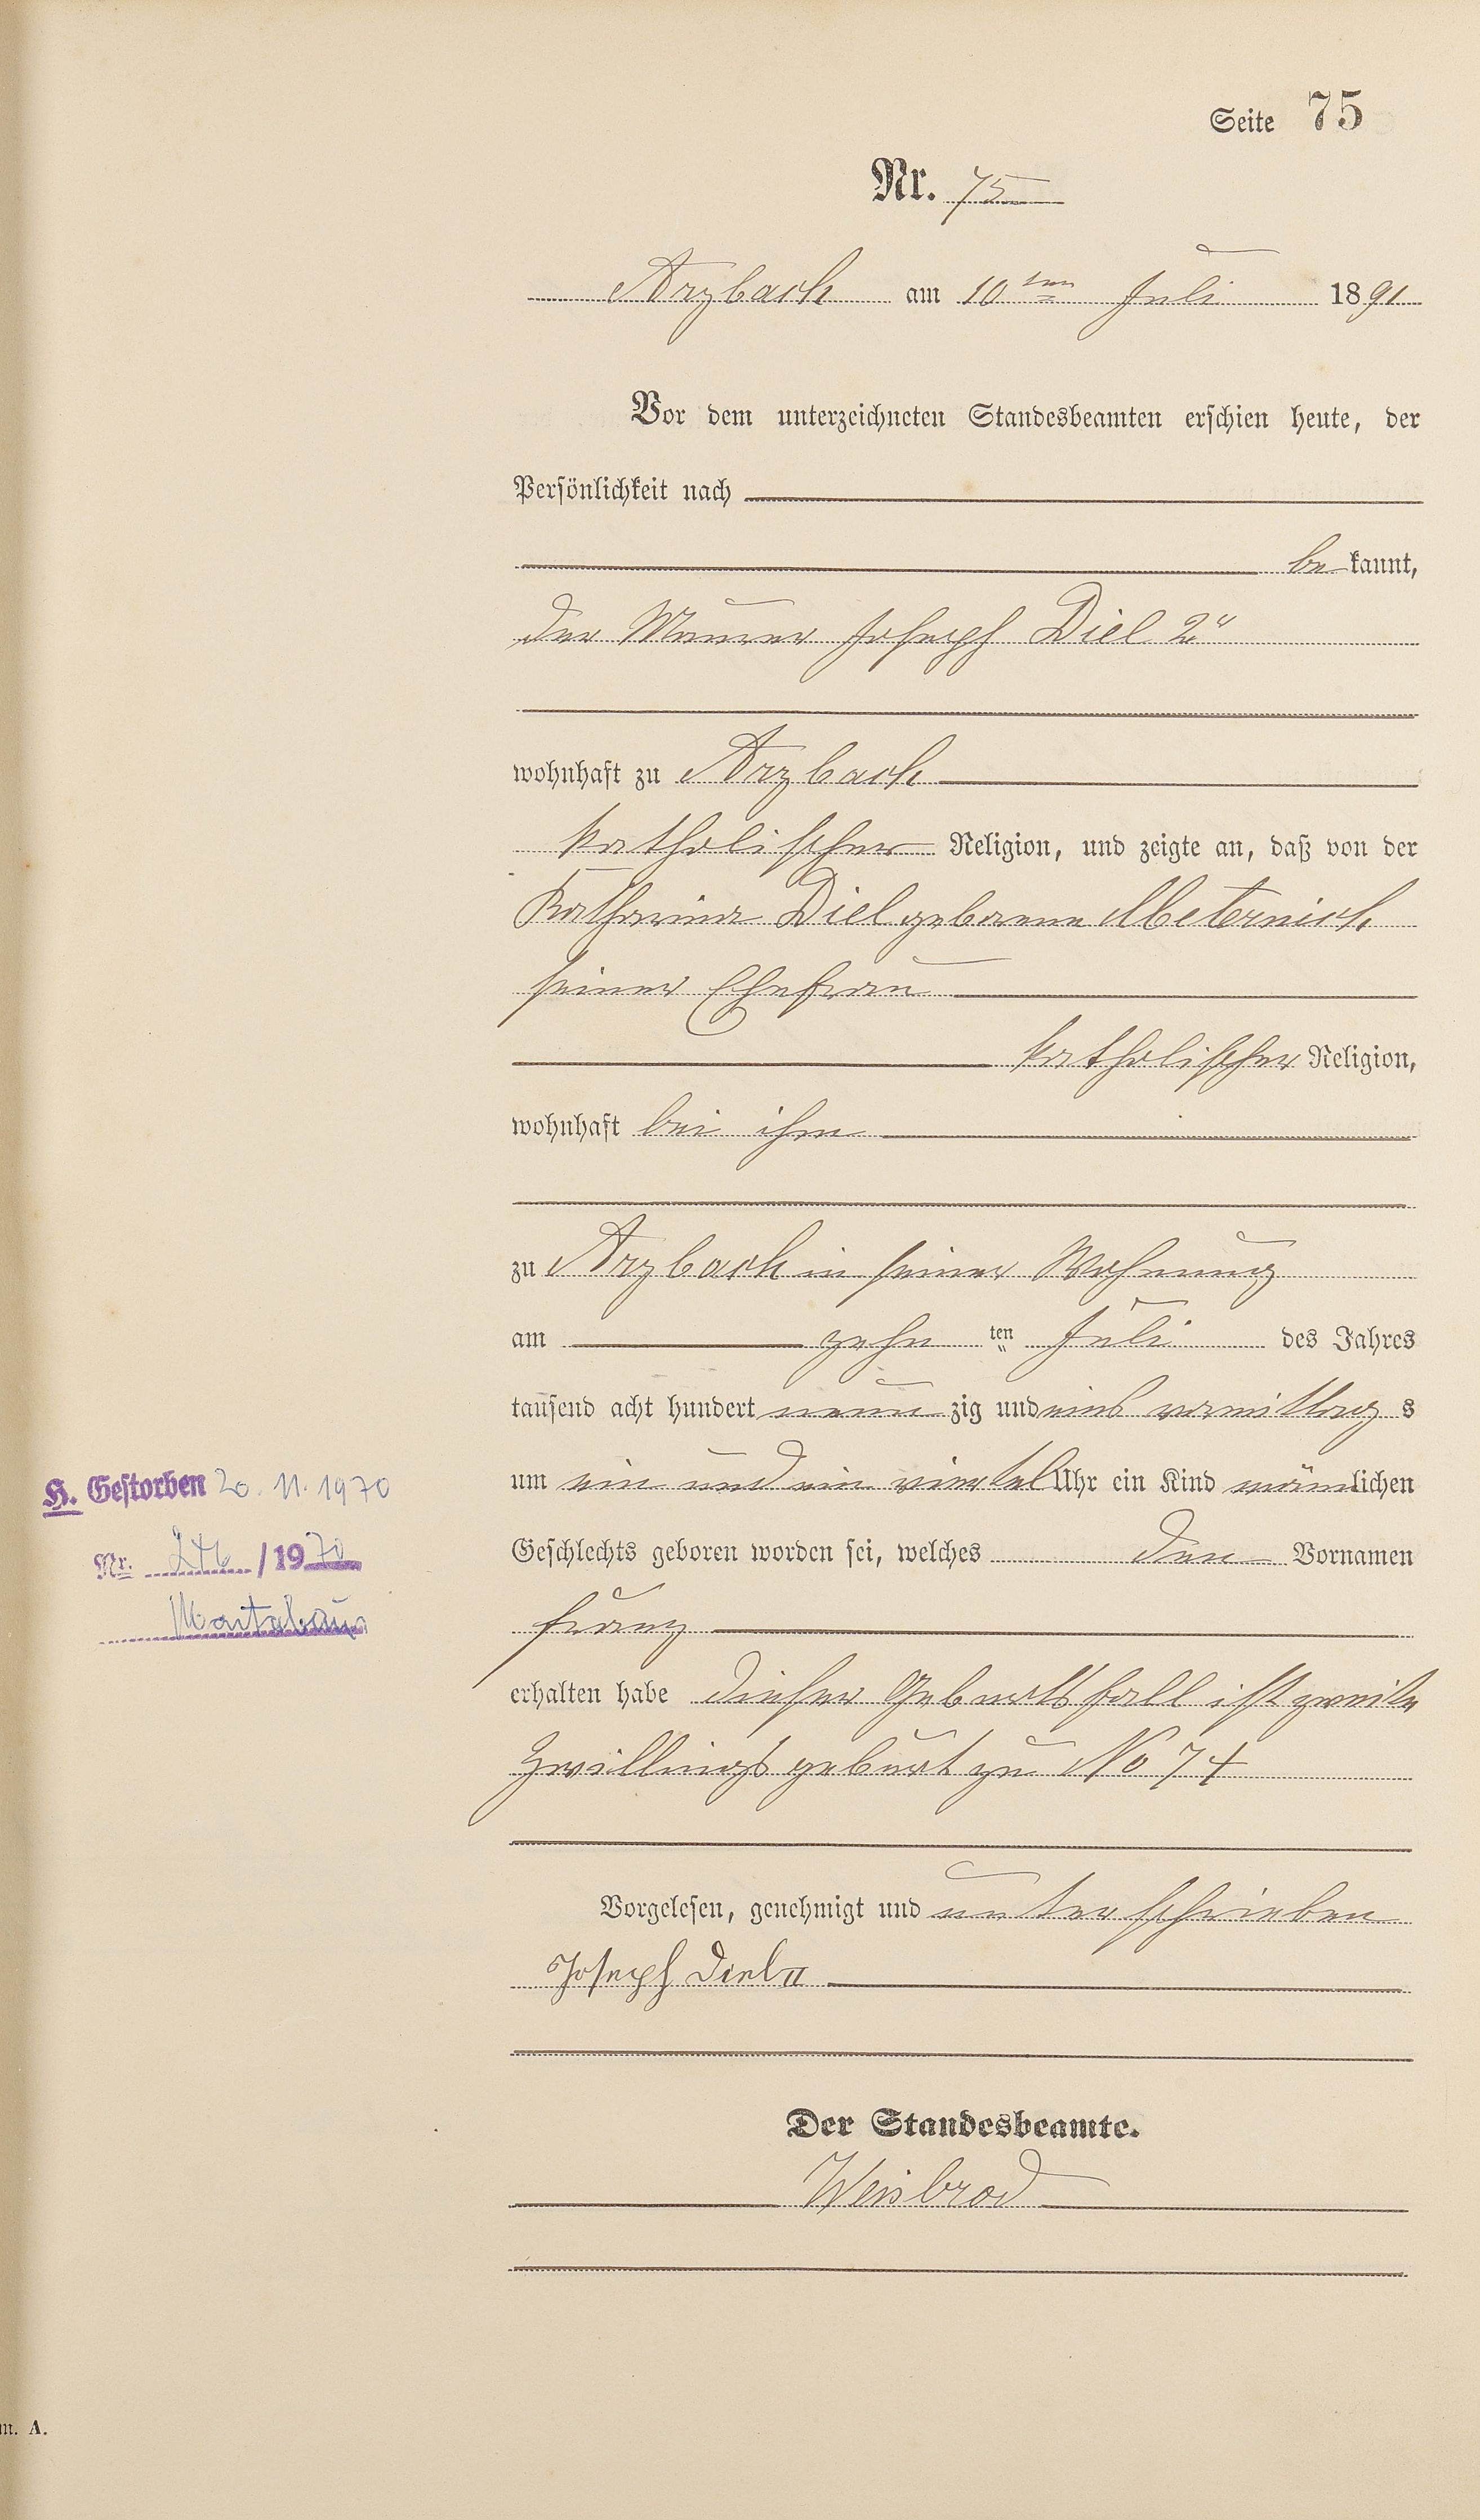 Seite 75
Nr. 75
Arzbach am 10ten Juli 1891
Vor dem unterzeichneten Standesbeamten erschien heute, der
Persönlichkeit nach
bekannt,
der Maurer Joseph Diel 2"
wohnhaft zu Arzbach
katholischer Religion, und zeigte an, daß von der
Katharina Diel geborene Meternich
seiner Ehefrau
katholischer Religion,
wohnhaft bei ihm
zu Arzbach in seiner Wohnung
am zehn ten Juli des Jahres
tausend acht hundert neunzig und eins vormittags
um ein und ein viertel Uhr ein Kind männlichen
Geschlechts geboren worden sei, welches den Vornamen
Franz
erhalten habe dieser Geburtsfall ist zweite
Zwillingsgeburt zu No 74
Vorgelesen, genehmigt und unterschrieben
Joseph Diel II
Der Standesbeamte.
Weisbrod
H. Gestorben 20.11.1970
Nr. /1970
Montabaur
m. A.